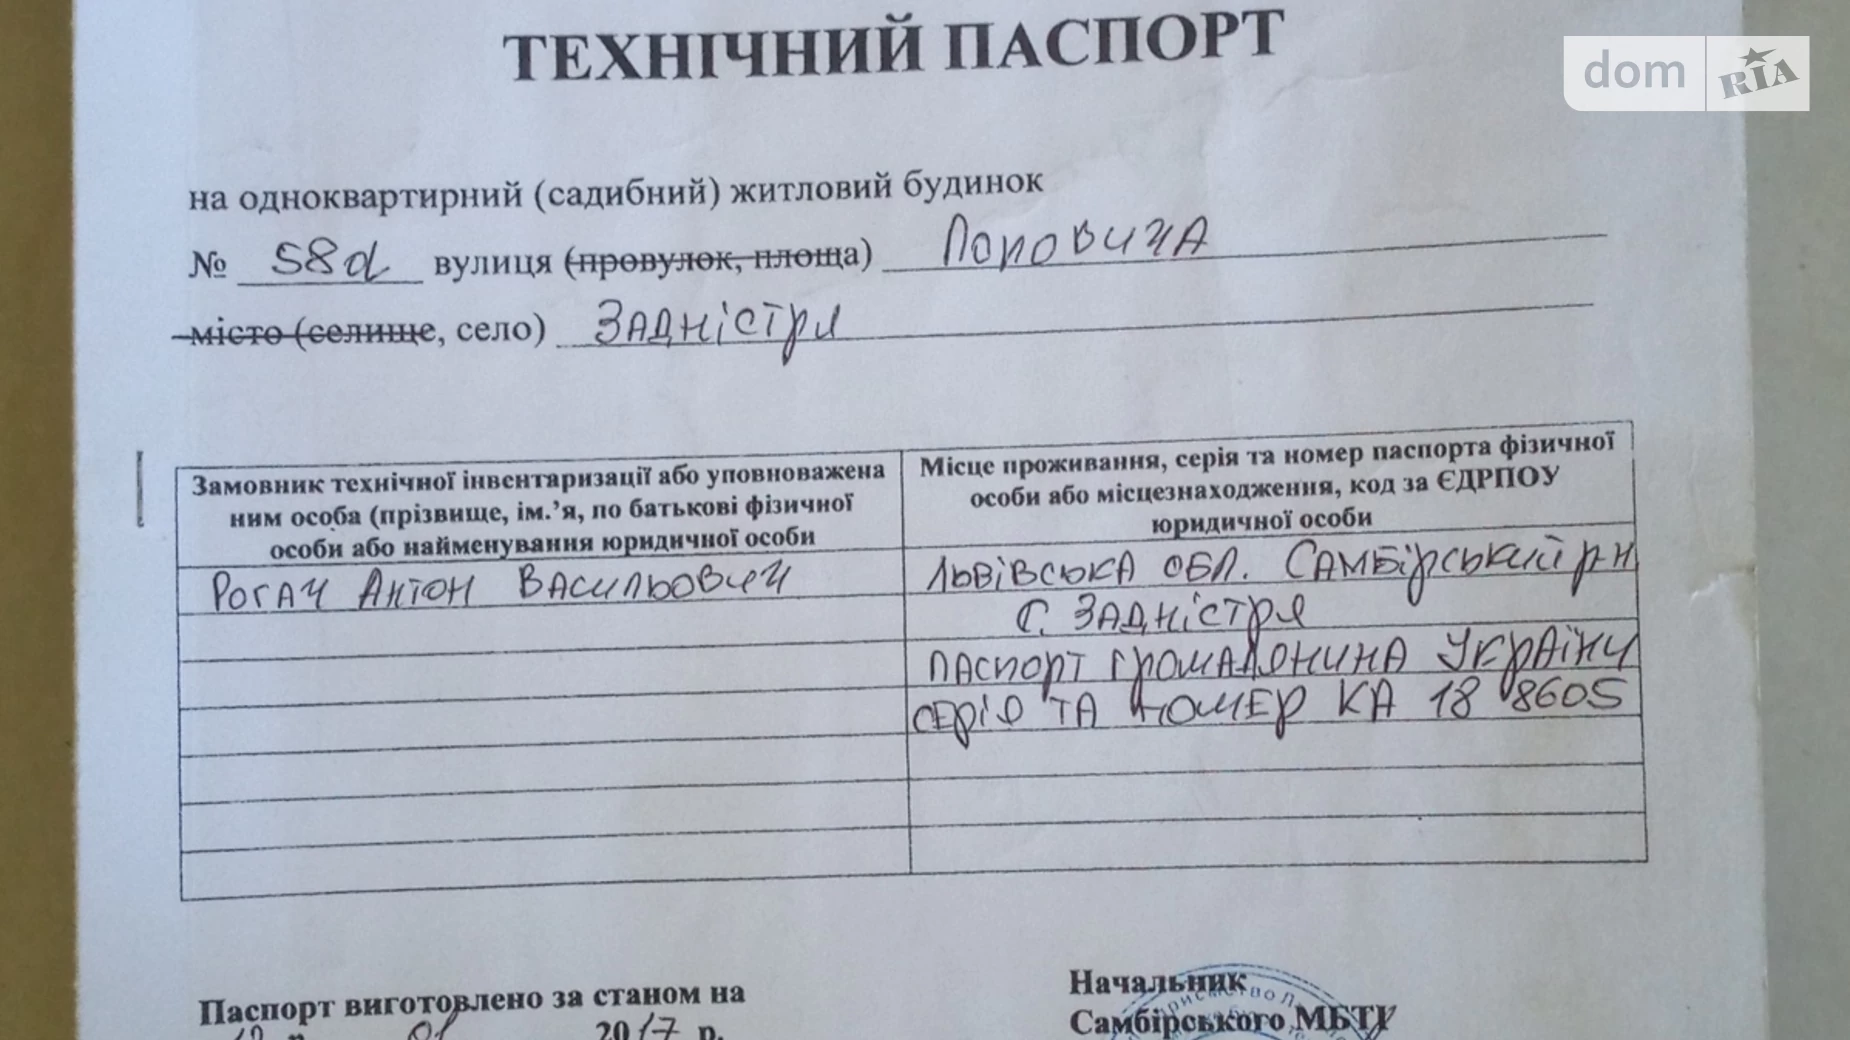 ТЕХНІЧНИЙ ПАСПОРТ
dom RIA
на одноквартирний (садибний) житловий будинок
№ 58а вулиця (провулок, площа) Поповича
місто (селище, село) Задністря
Замовник технічної інвентаризації або уповноважена
ним особа (прізвище, ім.'я, по батькові фізичної
особи або найменування юридичної особи
Місце проживання, серія та номер паспорта фізичної
особи або місцезнаходження, код за ЄДРПОУ
юридичної особи
Рогач Антон Васильович
Львівська обл. Самбірський р-н
с. Задністря
паспорт громадянина України
серія та номер КА 18 8605
Паспорт виготовлено за станом на
01 2017 р.
Начальник
Самбірського МБТІ